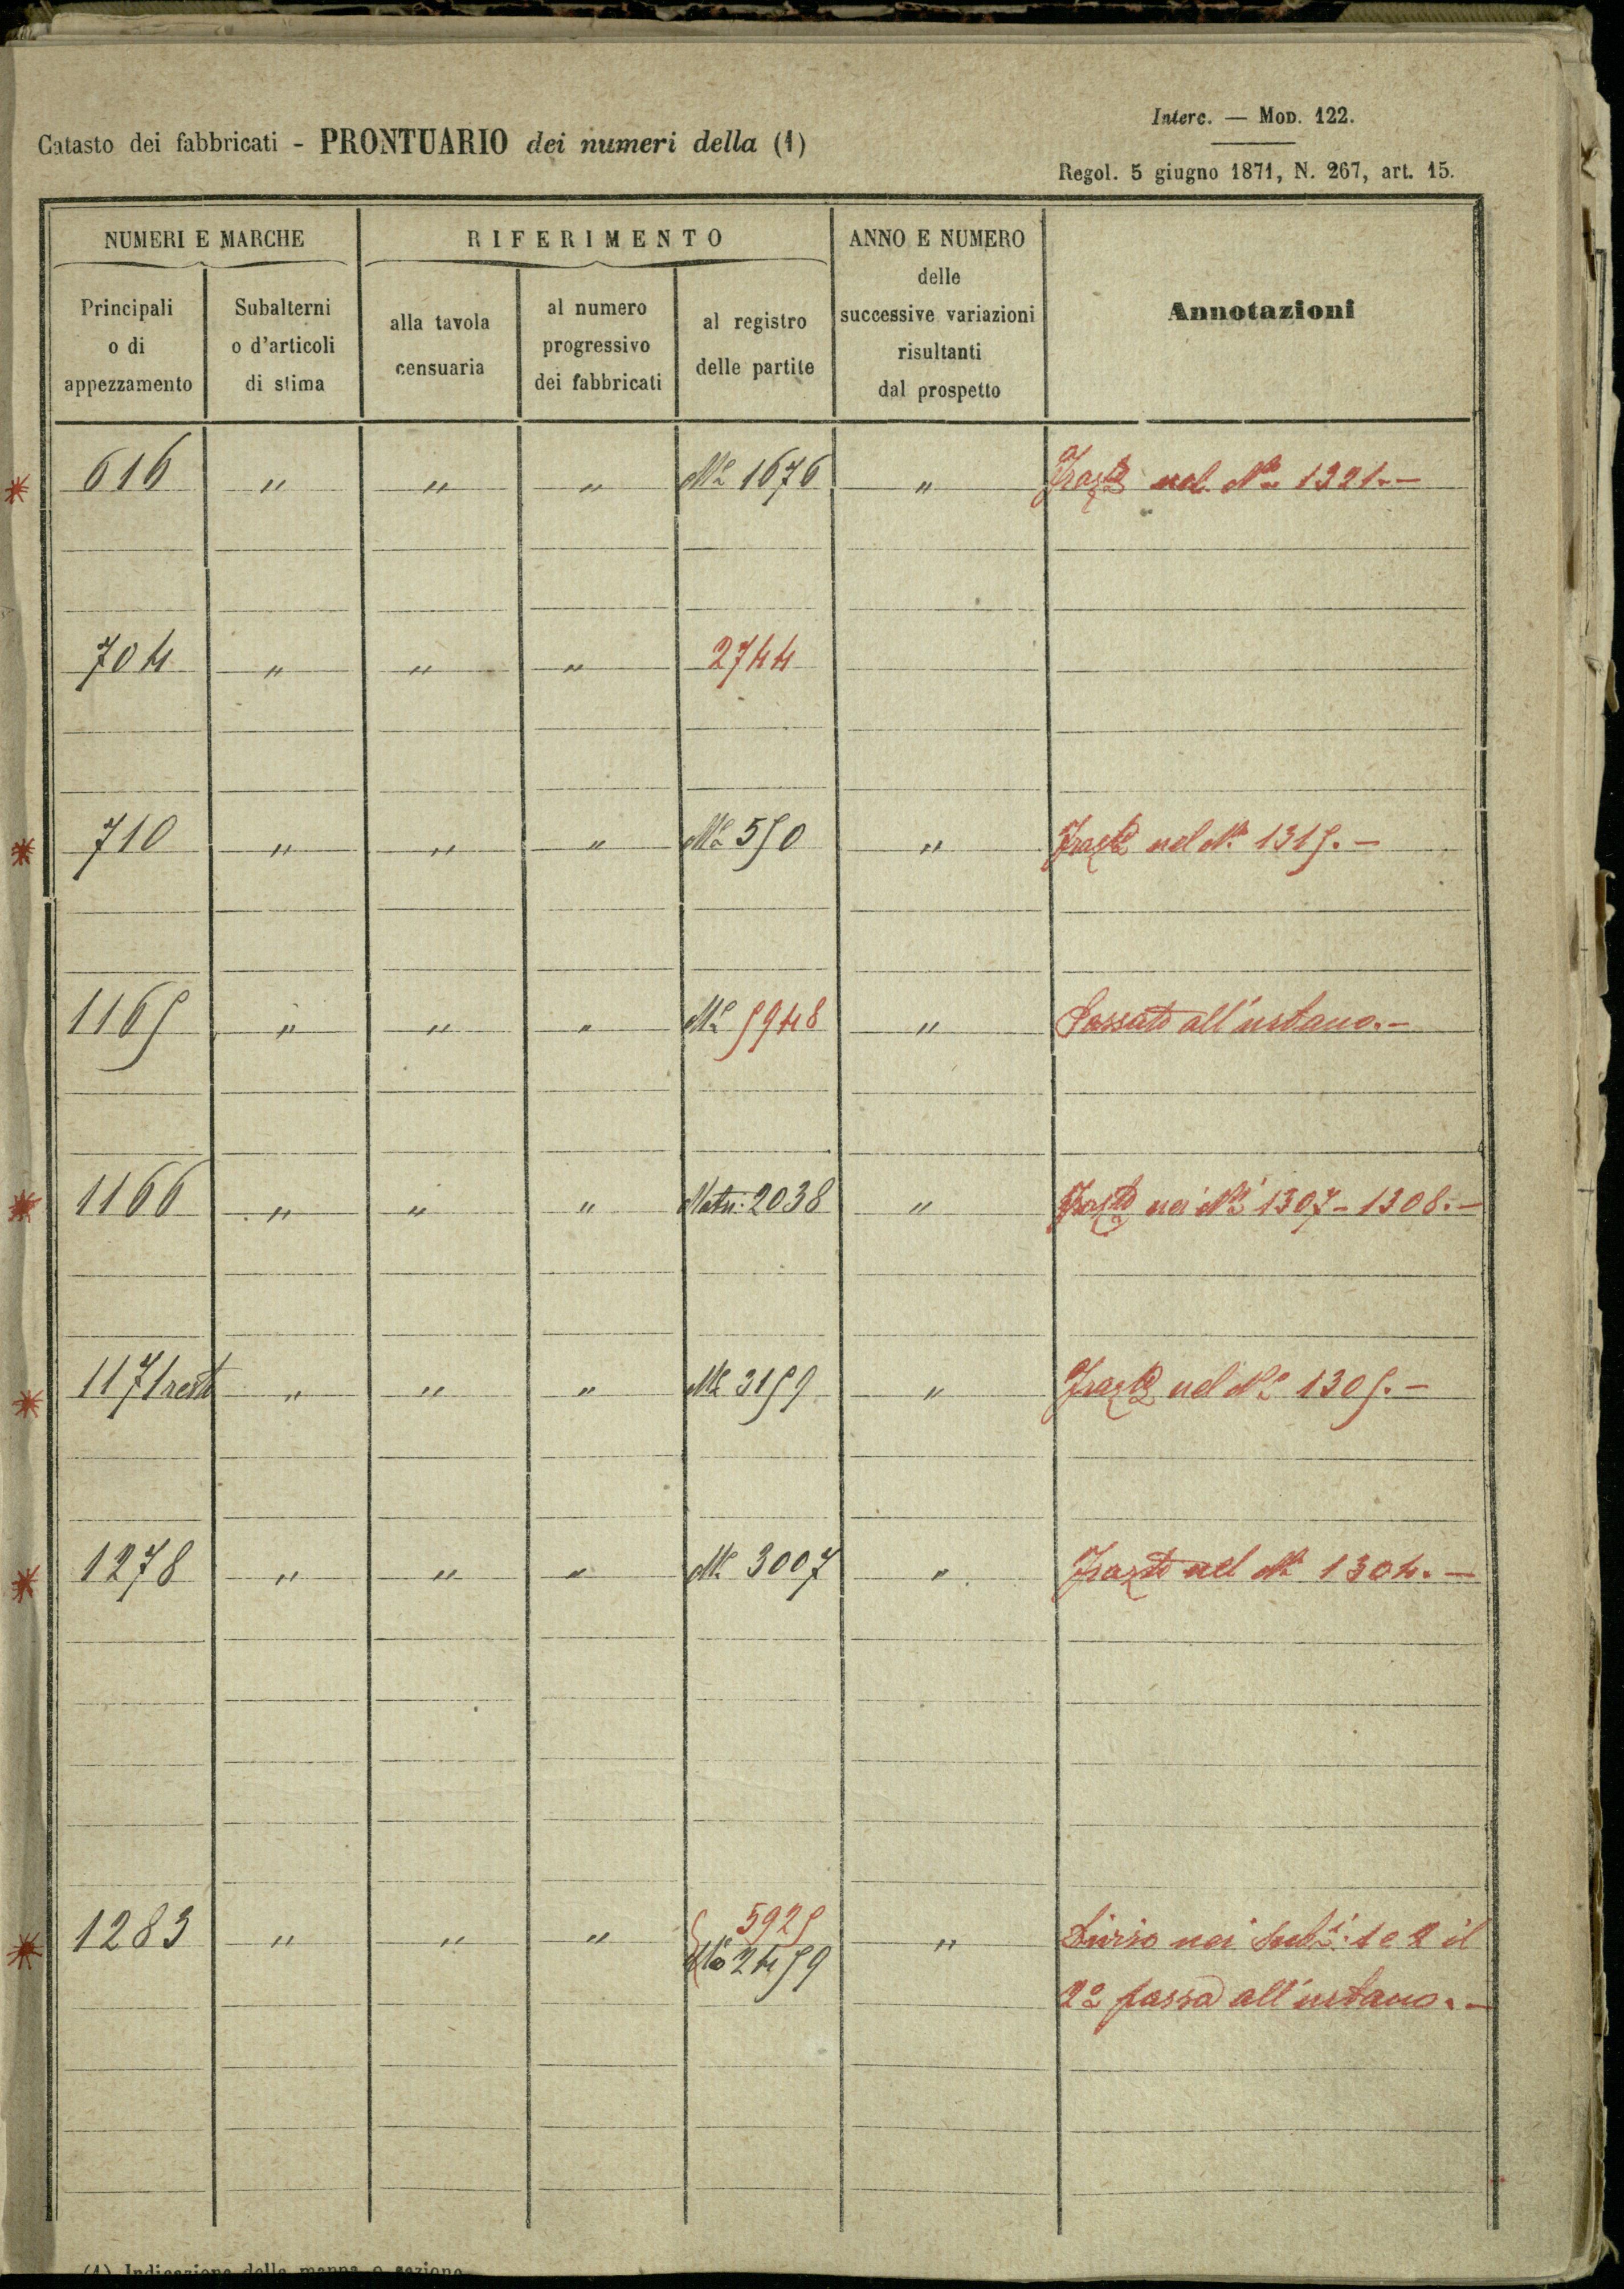 Interc. — Mod. 122.
Catasto dei fabbricati - PRONTUARIO dei numeri della (1)
Regol. 5 giugno 1871, N. 267, art. 15.
NUMERI E MARCHE RIFERIMENTO ANNO E NUMERO delle successive variazioni risultanti dal prospetto Annotazioni
Principali o di appezzamento
Subalterni o d'articoli di stima
alla tavola censuaria
al numero progressivo dei fabbricati
al registro delle partite
* 616 " " " Nº 1676 " nel Nº 1321.-
704 " " " 2744
* 710 " " " Nº 550 " nel Nº 1315.-
1165 " " " Nº 5948 " Passato all'urbano.-
* 1166 " " " Matri: 2038 " nei Nⁱ 1307-1308.-
* 1171 resto " " " Nº 3159 " nel Nº 1305.-
* 1278 " " " Nº 3007 " nel Nº 1304.-
* 1283 " " " 5925 " Diviso nei Subⁱ: 1 e 2 il
Nº 2459 2º passa all'urbano.-
(1) Indicazione della mappa o sezione